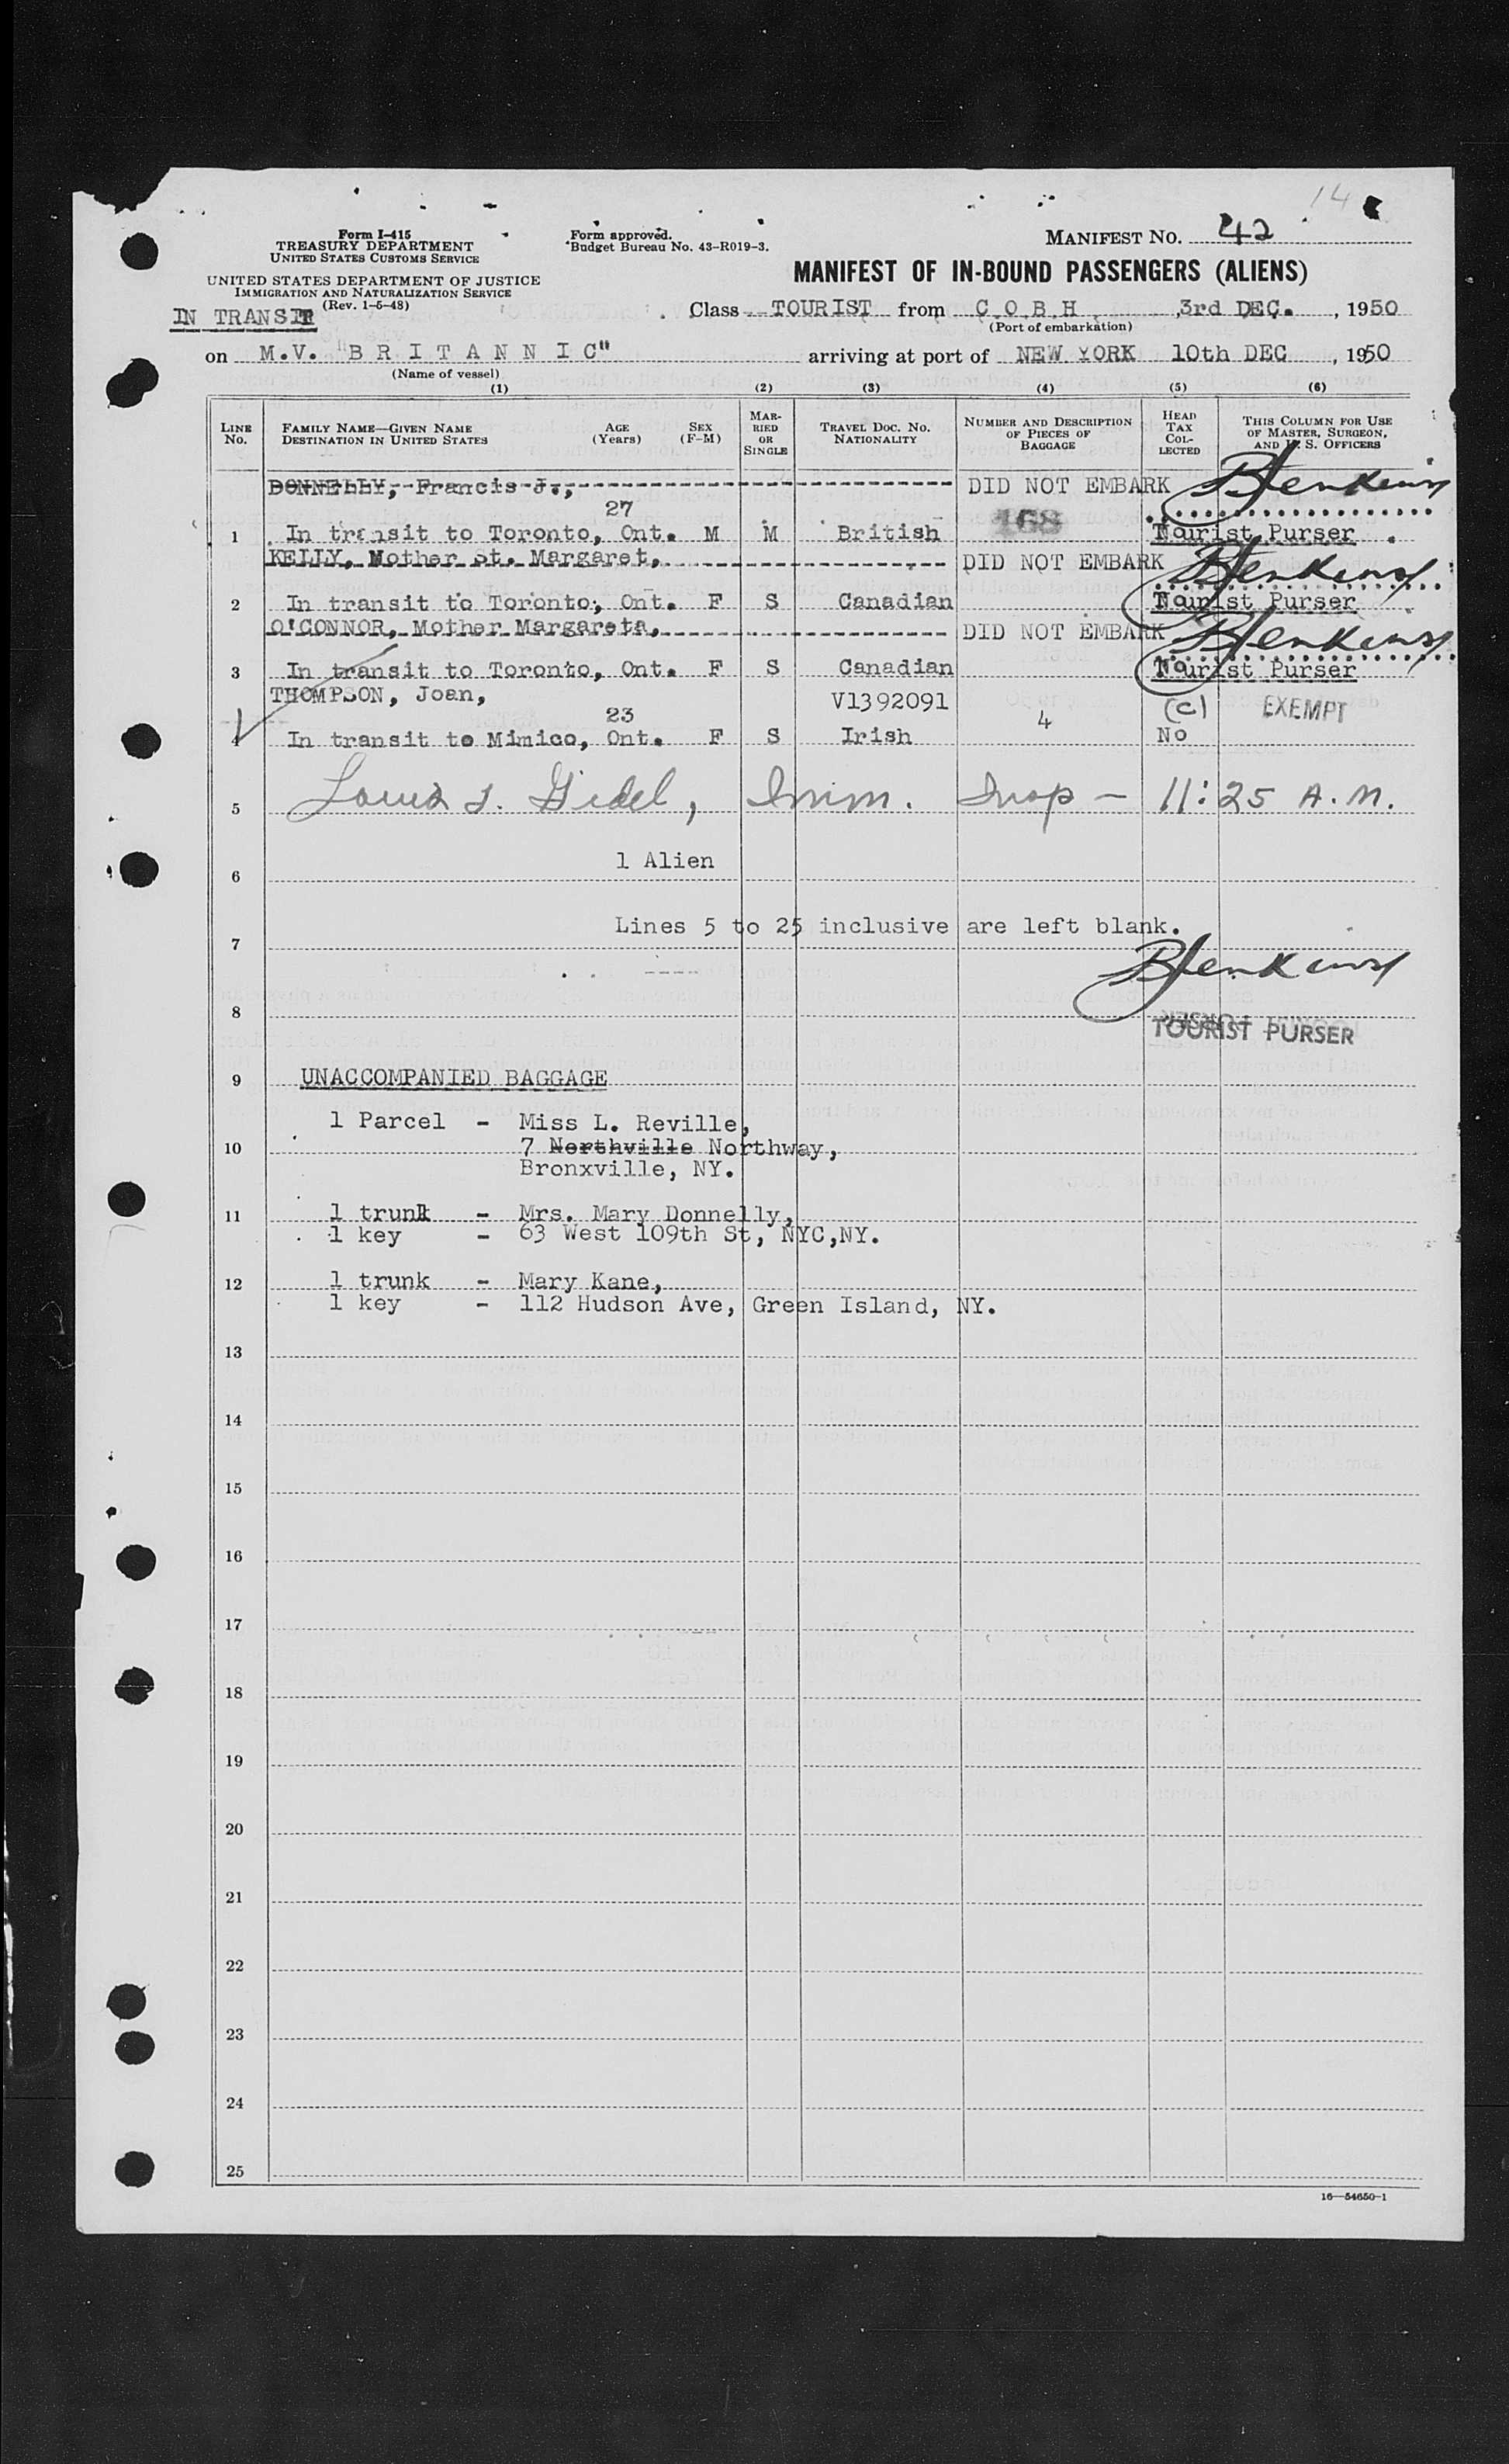 14
Form I-415
TREASURY DEPARTMENT
UNITED STATES CUSTOMS SERVICE
UNITED STATES DEPARTMENT OF JUSTICE
IMMIGRATION AND NATURALIZATION SERVICE
(Rev. 1-6-48)
IN TRANSIT
Form approved.
Budget Bureau No. 43-R019-3.
MANIFEST NO. 42
MANIFEST OF IN-BOUND PASSENGERS (ALIENS)
Class TOURIST from C O B H , 3rd DEC. , 1950
(Port of embarkation)
on M.V. "B R I T A N N I C" arriving at port of NEW YORK 10th DEC , 1950
(Name of vessel)
(1) (2) (3) (4) (5) (6)
LINE No. FAMILY NAME—GIVEN NAME DESTINATION IN UNITED STATES AGE (Years) SEX (F-M) MARRIED OR SINGLE TRAVEL DOC. NO. NATIONALITY NUMBER AND DESCRIPTION OF PIECES OF BAGGAGE HEAD TAX COLLECTED THIS COLUMN FOR USE OF MASTER, SURGEON, AND U. S. OFFICERS
DONNELLY, Francis J., DID NOT EMBARK BJenkins
27 168
1 In transit to Toronto, Ont. M M British Tourist Purser
KELLY, Mother St. Margaret, DID NOT EMBARK BJenkins
2 In transit to Toronto, Ont. F S Canadian Tourist Purser
O'CONNOR, Mother Margareta, DID NOT EMBARK BJenkins
3 In transit to Toronto, Ont. F S Canadian Tourist Purser
THOMPSON, Joan, V1392091 (c) EXEMPT
23 4
4 In transit to Mimico, Ont. F S Irish No
5 Louis J. Gidel, Imm. Insp — 11:25 A.M.
1 Alien
6
Lines 5 to 25 inclusive are left blank.
7
BJenkins
8
TOURIST PURSER
9 UNACCOMPANIED BAGGAGE
1 Parcel - Miss L. Reville,
10 7 Northville Northway,
Bronxville, NY.
11 1 trunk - Mrs. Mary Donnelly,
1 key - 63 West 109th St, NYC,NY.
12 1 trunk - Mary Kane,
1 key - 112 Hudson Ave, Green Island, NY.
13
14
15
16
17
18
19
20
21
22
23
24
25
16—54650-1